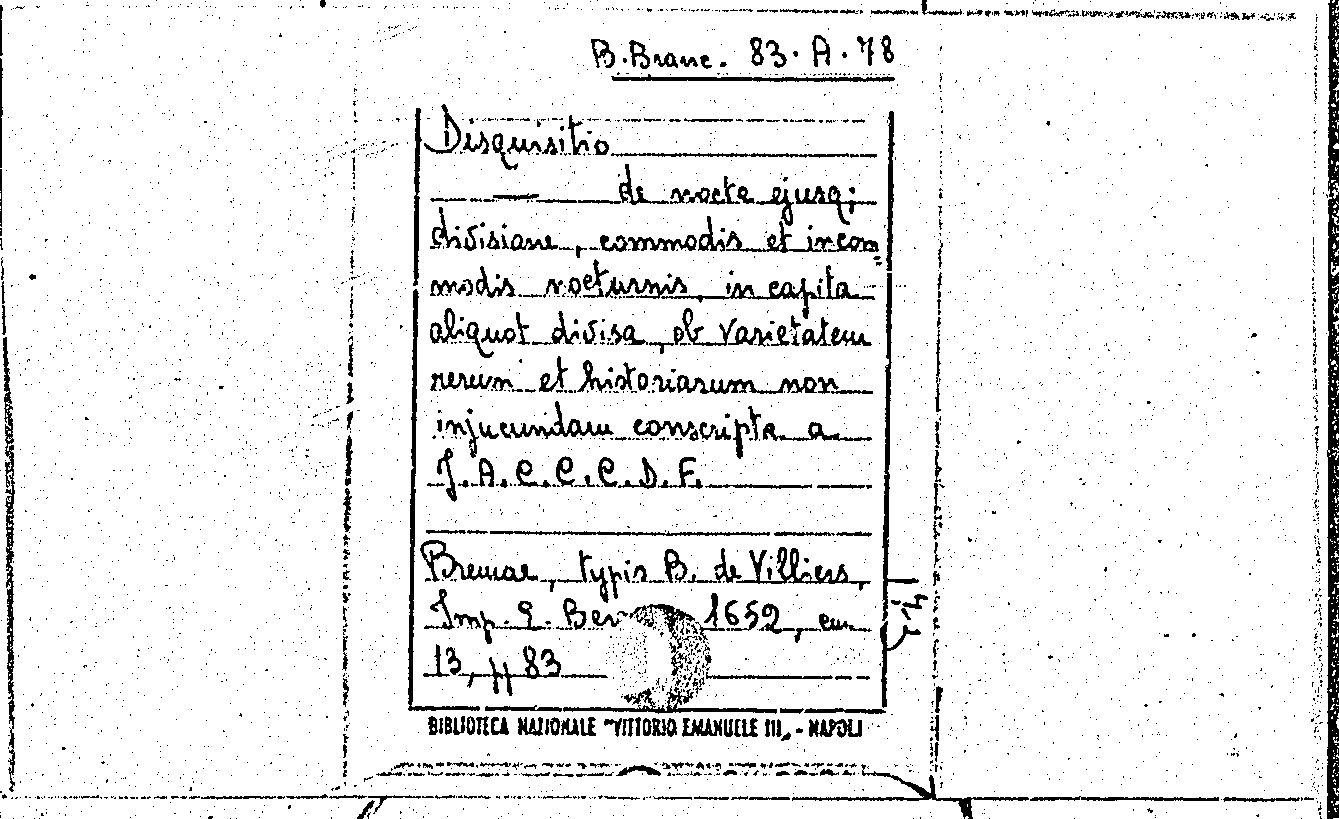 B. Branc. 83. A. 78
Disquisitio
— de nocte ejusq;
divisione, commodis et incom=
modis nocturnis, in capita
aliquot divisa, ob varietatem
rerum et historiarum non
injucundam conscripta a
J. A. C. C. C. D. F.
Bremae, typis B. de Villiers,
Imp. E. Ber 1652, cm
13, pp 83
BIBLIOTECA NAZIONALE "VITTORIO EMANUELE III„ - NAPOLI